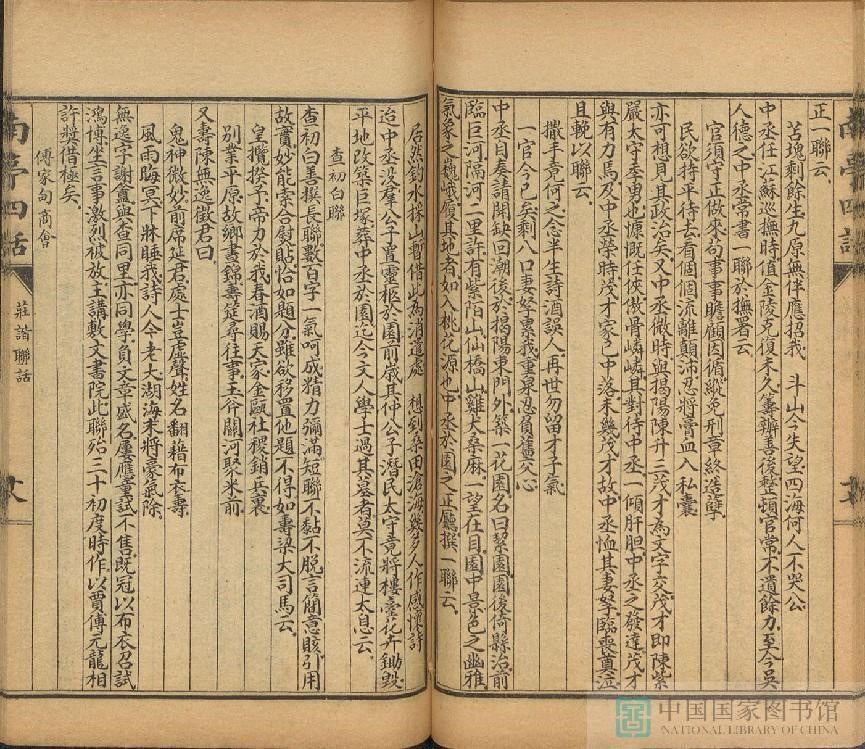 正一聯云
苦塊剩餘生九原無伴應招我 斗山今失望四海何人不哭公
中丞任江蘇巡撫時值金陵克復未久籌辦善後整頓官常不遺餘力至今吳
人德之中丞常書一聯於撫署云
官須守正做來苟事事瞻顧因循縱免刑章終造孽
民欲持平待去看個個流離顛沛忍將膏血入私囊
亦可想見其政治矣又中丞微時與揭陽陳升三茂才為文字交茂才即陳紫
嚴太守季男也慷慨任俠傲骨嶙嶙其對待中丞一傾肝胆中丞之發達茂才
與有力焉及中丞榮時茂才家已中落未幾茂才故中丞恤其妻孥臨喪奠泣
且輓以聯云
撒手竟何之念半生詩酒誤人再世勿留才子氣
一官今已矣剩八口妻孥累我重泉忍負舊交心
中丞自奏請開缺回潮後於揭陽東門外築一花園名曰絜園園後倚縣治前
臨巨河隔河二里許有紫陌山仙橋山雞犬桑麻一望在目園中景色之幽雅
氣象之巍峨履其地者如入桃花源也中丞於園之正廳撰一聯云
居然釣水採山暫借此為消遣處 想到桑田滄海幾多人作感懷詩
迨中丞沒羣公子置靈柩於園前歲其仲公子潛民太守竟將樓臺花卉鋤毀
平地改築巨塚葬中丞於園迄今文人學士過其墓者莫不流連太息云
查初白聯
查初白善撰長聯數百字一氣呵成精力彌滿短聯不黏不脫言簡意賅引用
故實妙能索合熨貼恰如題分雖欲移置他題不得如壽梁大司馬云
皇攬揆予帝力於我春酒賜天家金甌社稷銷兵裏
別業平原故鄉晝錦壽筵尋往事玉斧關河聚米前
又壽陳無逸徵君曰
鬼神微妙前席延君處士豈虛聲姓名翻藉布衣壽
風雨晦冥下牀睡我詩人今老大湖海未將豪氣除
無逸字謝盦與查同里亦同學負文章盛名屢應童試不售既冠以布衣召試
鴻博生言事激烈被放主講敷文書院此聯殆三十初度時作以賈傅元龍相
許獎借極矣
傅家句商會
南亭四話
莊諧聯話
中国国家图书馆
NATIONAL LIBRARY OF CHINA